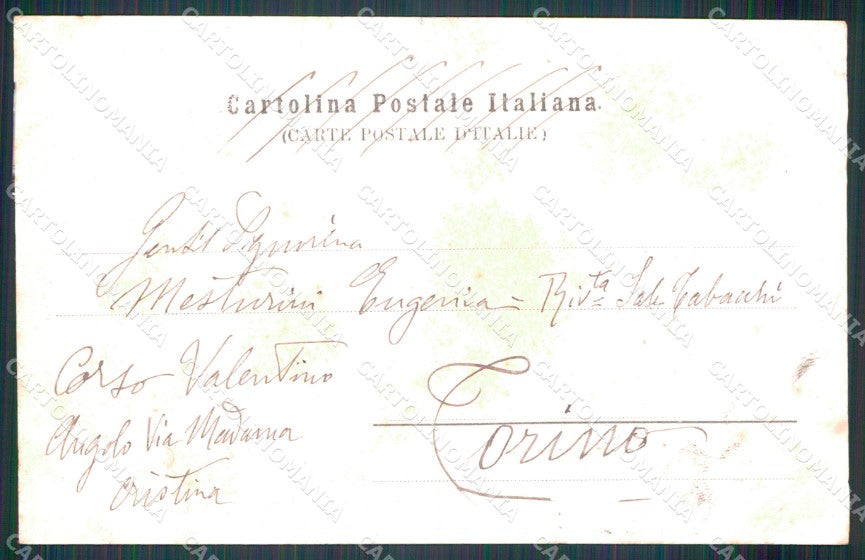 Cartolina Postale Italiana
(CARTE POSTALE D'ITALIE)
Gent.l Signorina
Mesturini Eugenia - Riv.ta Sale Tabacchi
Corso Valentino
Angolo Via Madama
Cristina
Torino
CARTOLINOMANIA